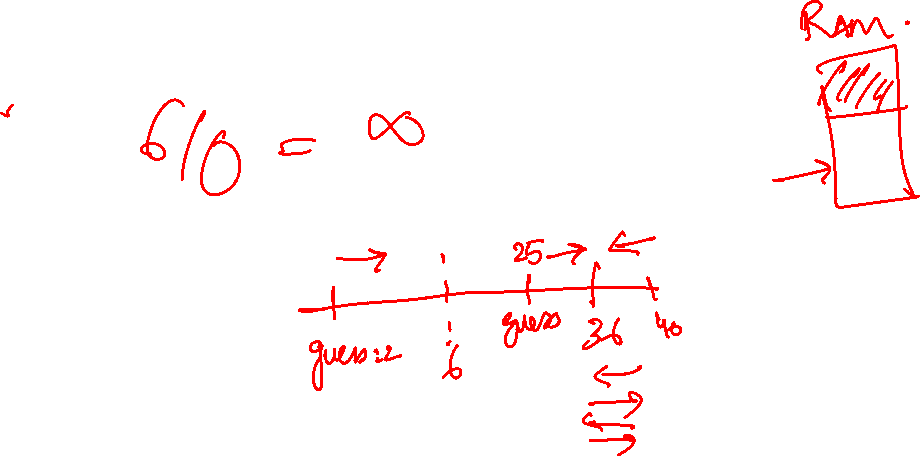 RAM.
6/0 = ∞
25
guess=2
6
guess
36
40